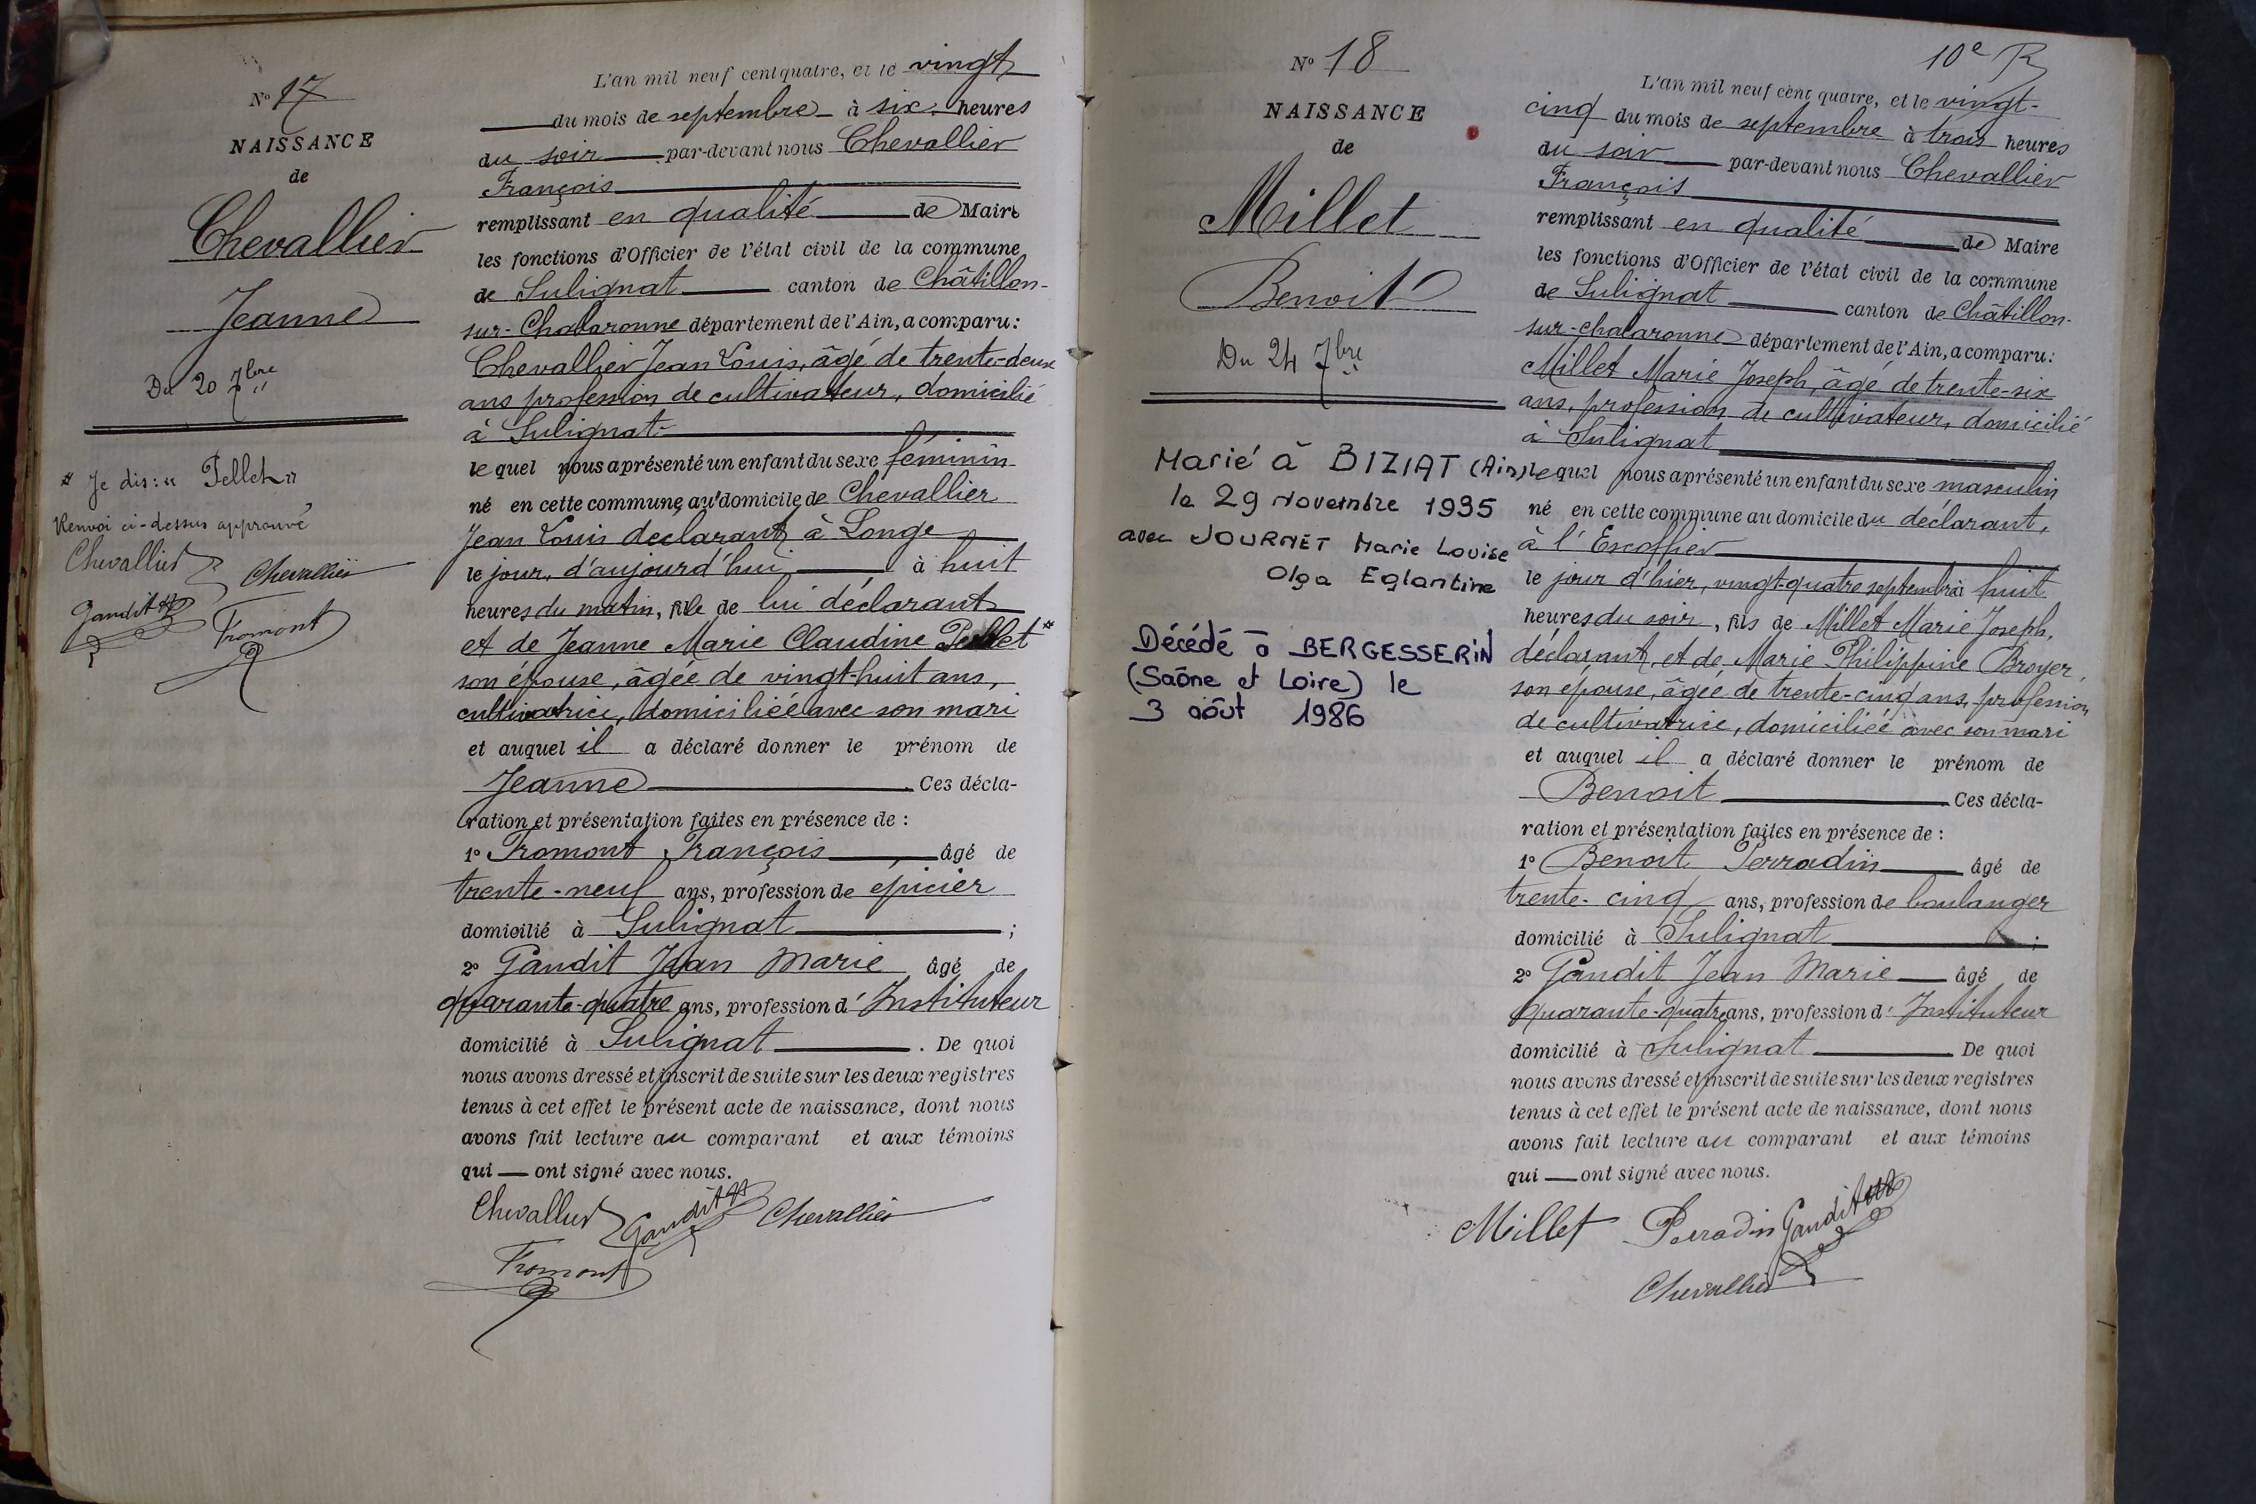 N° 17
NAISSANCE
de
Chevallier
Jeanne
Du 20 7bre
* Je dis: « Pellet »
Renvoi ci-dessus approuvé
Chevallier Chevallier
Gandit Fromont
L'an mil neuf cent quatre, et le vingt
du mois de septembre à six heures
du soir par-devant nous Chevallier
François
remplissant en qualité de Maire
les fonctions d'Officier de l'état civil de la commune
de Sulignat canton de Châtillon-
sur-Chalaronne département de l'Ain, a comparu:
Chevallier Jean Louis, âgé de trente-deux
ans profession de cultivateur, domicilié
à Sulignat
lequel nous a présenté un enfant du sexe féminin
né en cette commune, au domicile de Chevallier
Jean Louis déclarant à Longe
le jour, d'aujourd'hui à huit
heures du matin, fille de lui déclarant
et de Jeanne Marie Claudine Pellet*
son épouse, âgée de vingt-huit ans,
cultivatrice, domiciliée avec son mari
et auquel il a déclaré donner le prénom de
Jeanne Ces décla-
ration et présentation faites en présence de :
1° Fromont François âgé de
trente-neuf ans, profession de épicier
domicilié à Sulignat ;
2° Gandit Jean Marie âgé de
quarante-quatre ans, profession d'Instituteur
domicilié à Sulignat . De quoi
nous avons dressé et inscrit de suite sur les deux registres
tenus à cet effet le présent acte de naissance, dont nous
avons fait lecture au comparant et aux témoins
qui — ont signé avec nous.
Chevallier Gandit Chevallier
Fromont
10e R
N° 18
NAISSANCE
de
Millet
Benoit
Du 24 7bre
Marié à BIZIAT (Ain)
le 29 Novembre 1935
avec JOURNET Marie Louise
Olga Eglantine
Décédé à BERGESSERIN
(Saône et Loire) le
3 août 1986
L'an mil neuf cent quatre, et le vingt-
cinq du mois de septembre à trois heures
du soir par-devant nous Chevallier
François
remplissant en qualité de Maire
les fonctions d'Officier de l'état civil de la commune
de Sulignat canton de Châtillon-
sur-chalaronne département de l'Ain, a comparu:
Millet Marie Joseph, âgé de trente-six
ans, profession de cultivateur, domicilié
à Sulignat
lequel nous a présenté un enfant du sexe masculin
né en cette commune au domicile du déclarant,
à l'Escoffier
le jour d'hier, vingt-quatre septembre à huit
heures du soir, fils de Millet Marie Joseph,
déclarant, et de Marie Philippine Broyer,
son épouse, âgée de trente-cinq ans, profession
de cultivatrice, domiciliée avec son mari
et auquel il a déclaré donner le prénom de
Benoit Ces décla-
ration et présentation faites en présence de :
1° Benoit Perradin âgé de
trente-cinq ans, profession de boulanger
domicilié à Sulignat ;
2° Gandit Jean Marie âgé de
quarante-quatre ans, profession d'Instituteur
domicilié à Sulignat De quoi
nous avons dressé et inscrit de suite sur les deux registres
tenus à cet effet le présent acte de naissance, dont nous
avons fait lecture au comparant et aux témoins
qui — ont signé avec nous.
Millet Perradin Gandit
Chevallier